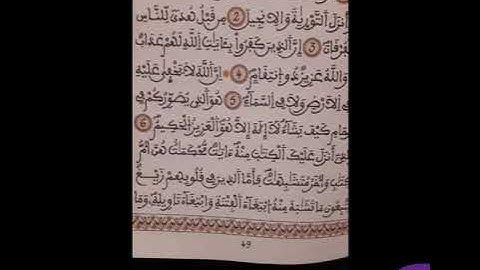 أَنزَلَ اَلتَّوْرَيٰةَ وَالِانجِيلَ 2 مِن قَبْلُ هُدىً لِّلنَّاسِ
لْفُرْقَانَ 3 إِنَّ اَلذِينَ كَفَرُواْ بِـَٔايَٰتِ اِللَّهِ لَهُمْ عَذَابٌ
وَاللَّهُ عَزِيزٌ ذُو اَنتِقَامٍ 4 اِنَّ اَللَّهَ لَا يَخْفَىٰ عَلَيْهِ
فِے اِلَارْضِ وَلَا فِے اِلسَّمَآءِ 5 هُوَ اَلذِے يُصَوِّرُكُمْ فِے
كَيْفَ يَشَآءُ لَآ إِلَٰهَ إِلَّا هُوَ اَلْعَزِيزُ اُلْحَكِيمُ 6
أَنزَلَ عَلَيْكَ اَلْكِتَٰبَ مِنْهُ ءَايَٰتٌ مُّحْكَمَٰتٌ هُنَّ أُمُّ
كِتَٰبِ وَأُخَرُ مُتَشَٰبِهَٰتٌ فَأَمَّا اَلذِينَ فِے قُلُوبِهِمْ زَيْغٌ
مَا تَشَٰبَهَ مِنْهُ اُبْتِغَآءَ اَلْفِتْنَةِ وَابْتِغَآءَ تَاوِيلِهِۦ وَمَا
49